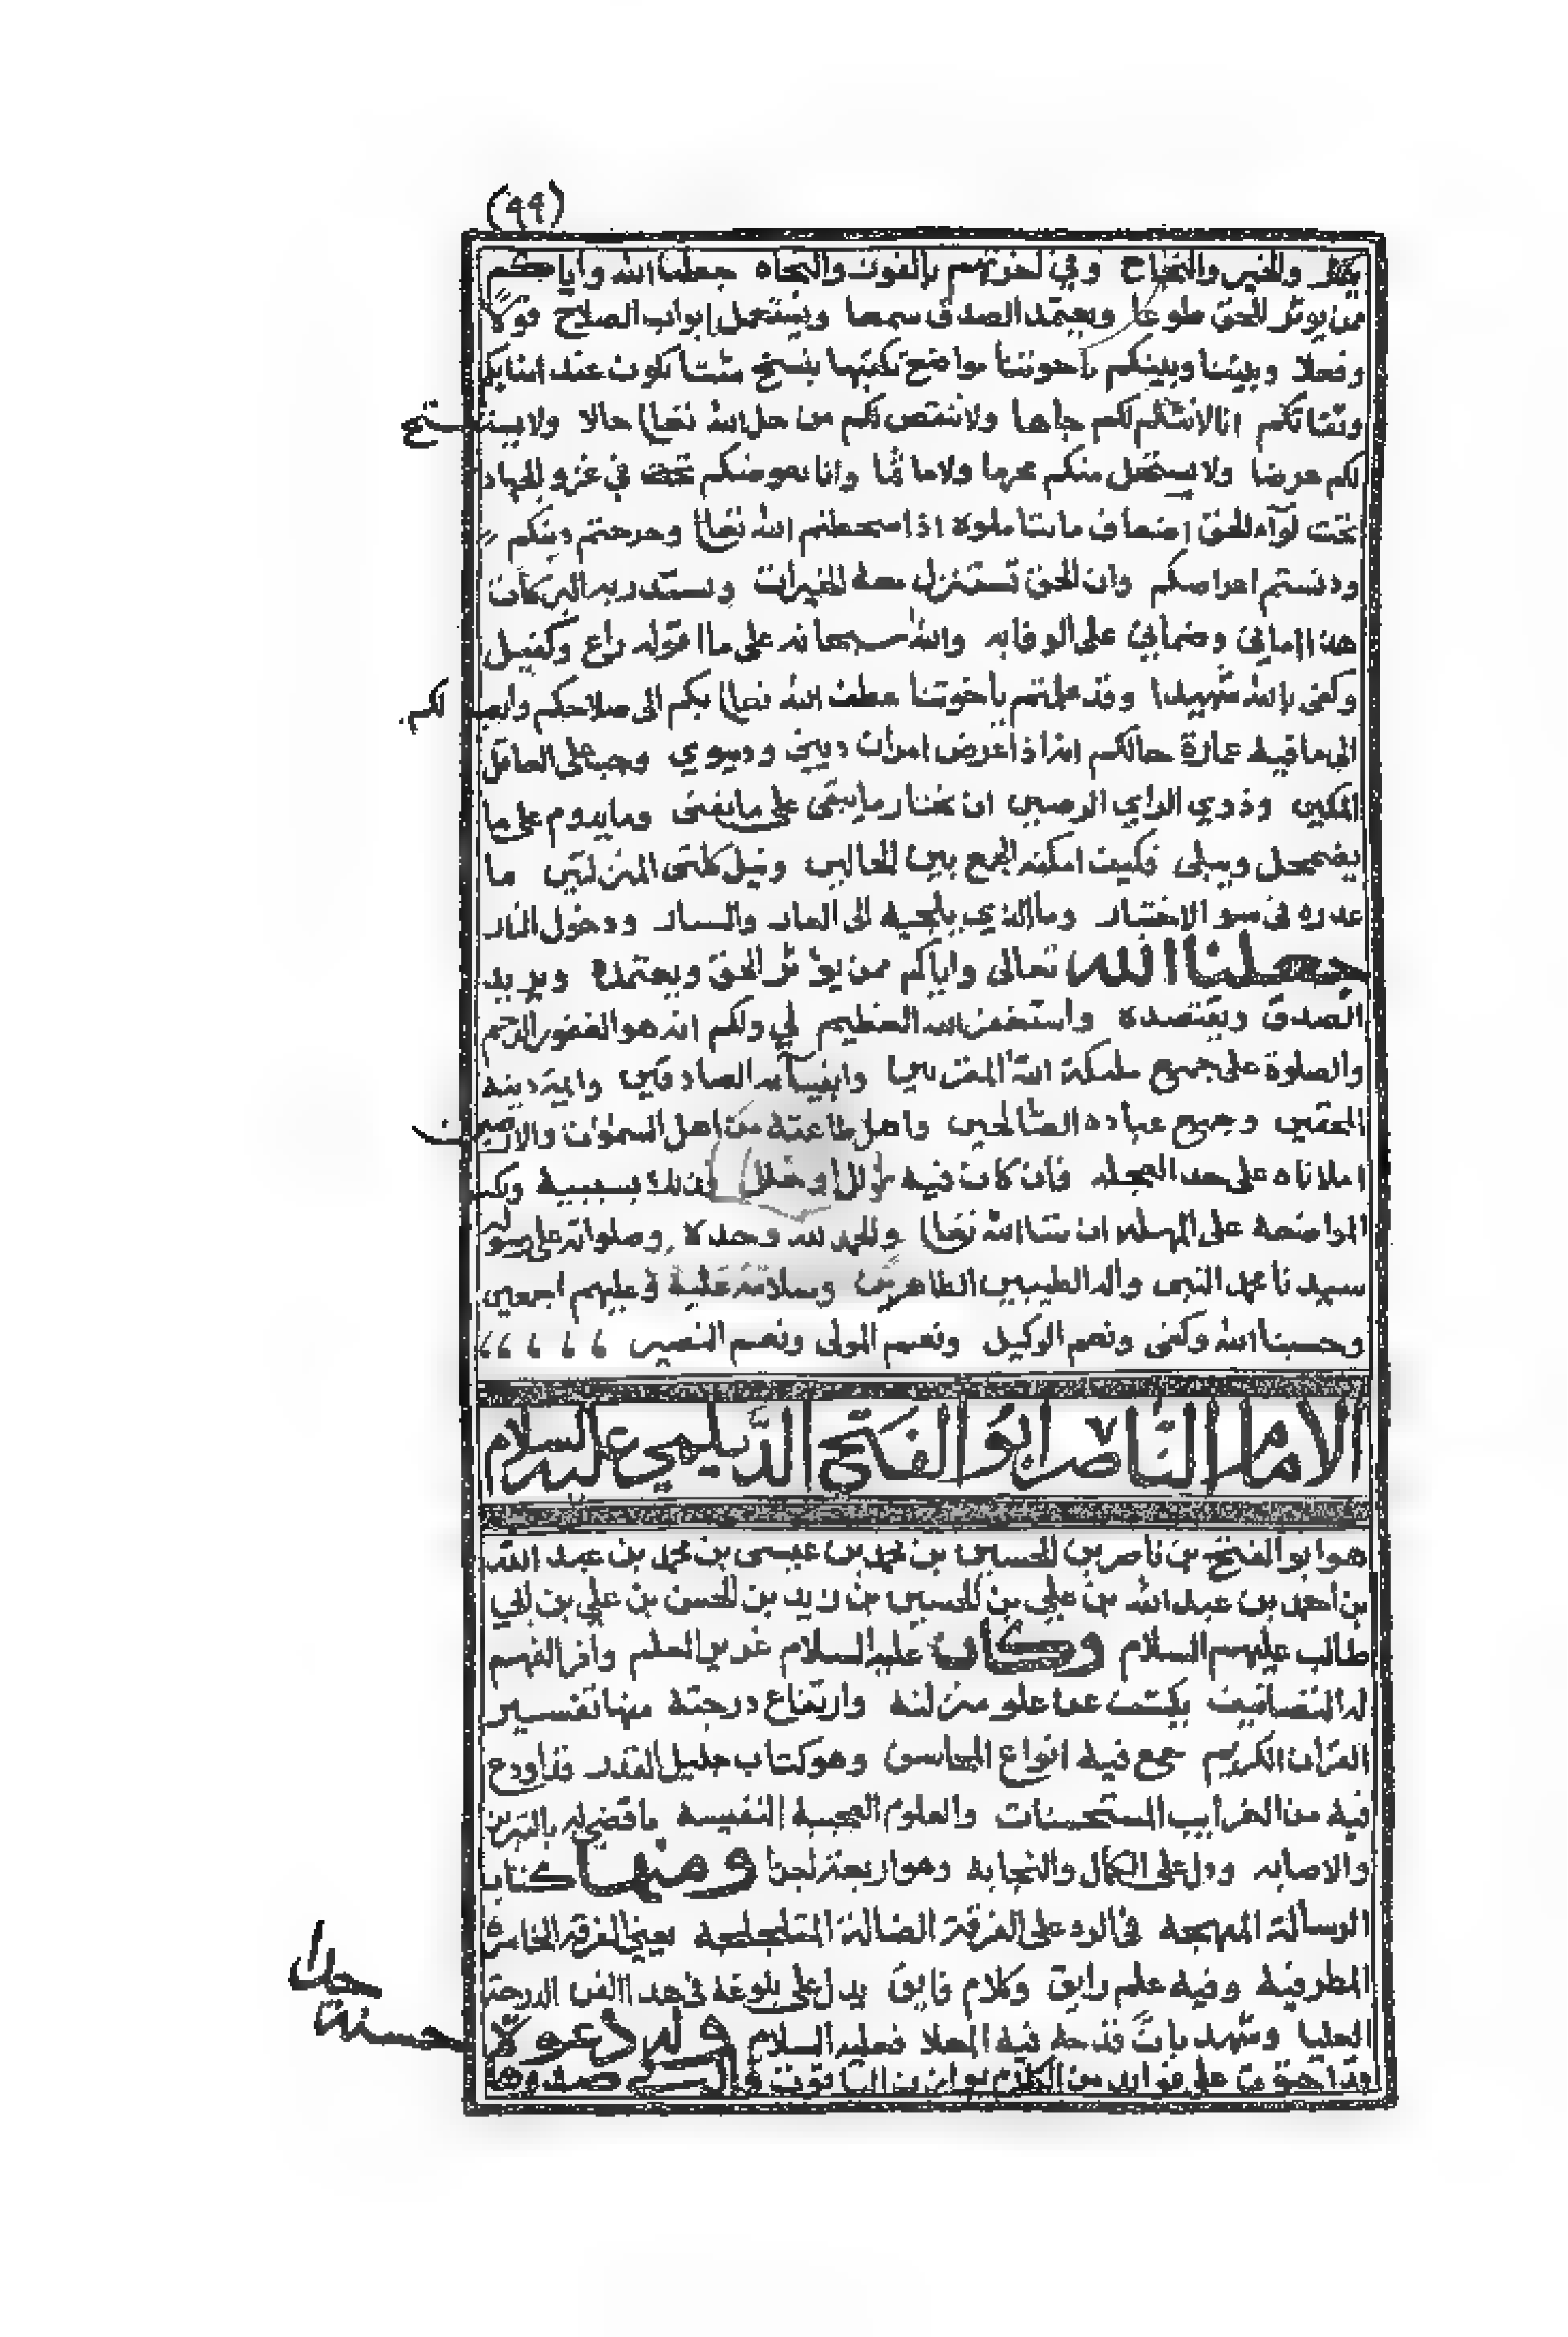 (٩٩)
والخير والنجاح وفي اخرتهم بالفوز والنجاه جعلنا الله واياكم
ممن يوثر الحق طوعا ويعتمد الصدق سمعا ويستعمل ابواب الصلاح قولا
وفعلا وبيننا وبينكم ياخوتنا مواضع نكتبها بنسخ شتا تكون عند امنايكم
وثقاتكم انا لا نثلم لكم جاها ولا ننتقص لكم من حل الله تعالى حالا ولا يستفتح
لكم عرضا ولا يستحل منكم محرما ولا ماثما وانا نعوضكم تحت في غزو الجهاد
تحت لوآء الحق اضعاف ما تتاملوه اذا سخطتم الله تعالى وجرحتم دينكم
ودنستم اعراضكم وان الحق تستنزل معه الخيرات وتستدر به البركات
هذا اماني وضماني على الوفا به والله سبحانه على ما اقوله راع وكفيل
وكفى بالله شهيدا وقد علمتم ياخوتنا عطف الله تعالى بكم الى صلاحكم وابصر لكم
الى ما فيه عمارة حالكم انه اذا عرض امران ديني ودنيوي وجب على العاقل
المكين وذوي الراي الرصين ان يختار ما يبقى على ما يفنى وما يدوم على ما
يضمحل ويبلى فكيف امكنه الجمع بين الحالين ونيل كلتى المنزلتين ما
عذره في سو الاختيار وما الذي يلجيه الى العار والنار ودخول النار
جعلنا الله تعالى واياكم ممن يوثر الحق ويعتمده ويريد
الصدق ويقتصده واستغفر الله العظيم لي ولكم انه هو الغفور الرحيم
والصلوة على جميع ملئكة الله المقربين وانبيآئه الصادقين وايمة دينه
المحقين وجميع عباده الصالحين واهل طاعته من اهل السموات والارضين
املاناه على حد العجله فان كان فيه زلل او خلل فذلك بسببه ونكتب
المواضعة على المهله ان شا الله تعالى والحمد لله وحده وصلواته على رسوله
سيدنا محمد النبى واله الطيبين الطاهرين وسلامه عليه وعليهم اجمعين
وحسبنا الله وكفى ونعم الوكيل ونعم المولى ونعم النصير
الامام الناصر ابو الفتح الديلمي عليه السلام
هو ابو الفتح بن ناصر بن الحسين بن محمد بن عيسى بن محمد بن عبد الله
بن احمد بن عبد الله بن علي بن الحسين بن زيد بن الحسن بن علي بن ابي
طالب عليهم السلام وكان عليه السلام غزير العلم وافر الفهم
له التصانيف بكشف عما علو منزلته وارتفاع درجته منها تفسير
القران الكريم جمع فيه انواع المحاسن وهو كتاب جليل القدر قد اودع
فيه من الغرايب المستحسنات والعلوم العجيبة النفيسه ما قضى له بالتبريز
والاصابه ودل على الكمال والنجابة وهو اربعة اجزا ومنها كتاب
الرسالة المبهجه في الرد على الفرقة الضالة المتلجلجه يعني الفرقة الخاسره
المطرفية وفيه علم رايق وكلام فايق يدل على بلوغه في هذا الفن الدرجة
العليا وشهد بان قدحه فيه المعلا فعليه السلام وله دعوة حسنة جدا
وقد احتوت على فوايد من الكلام يوازن الياقوت والتي صدرها